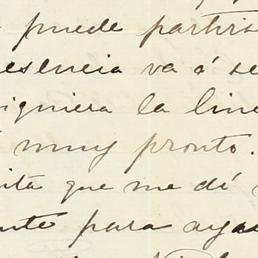 puede partir
esencia va á se
siguiera la line
muy pronto.
ita que me dé
nte para aya